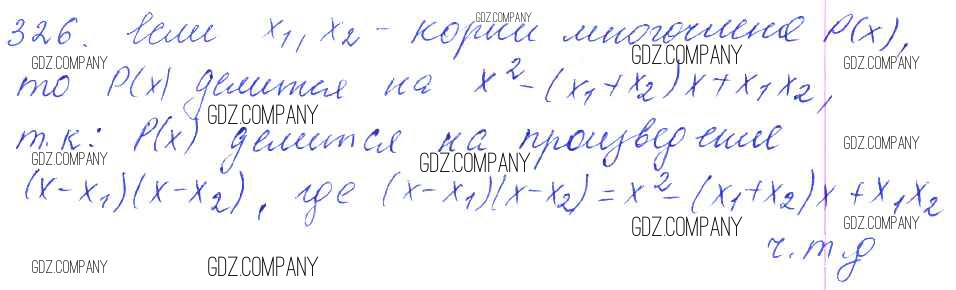 326. Если x₁, x₂ - корни многочлена P(x),
то P(x) делится на x² - (x₁ + x₂)x + x₁x₂,
т.к: P(x) делится на произведение
(x-x₁)(x-x₂), где (x-x₁)(x-x₂) = x² - (x₁+x₂)x + x₁x₂
ч.т.д
GDZ.COMPANY
GDZ.COMPANY
GDZ.COMPANY
GDZ.COMPANY
GDZ.COMPANY
GDZ.COMPANY
GDZ.COMPANY
GDZ.COMPANY
GDZ.COMPANY
GDZ.COMPANY
GDZ.COMPANY
GDZ.COMPANY
GDZ.COMPANY